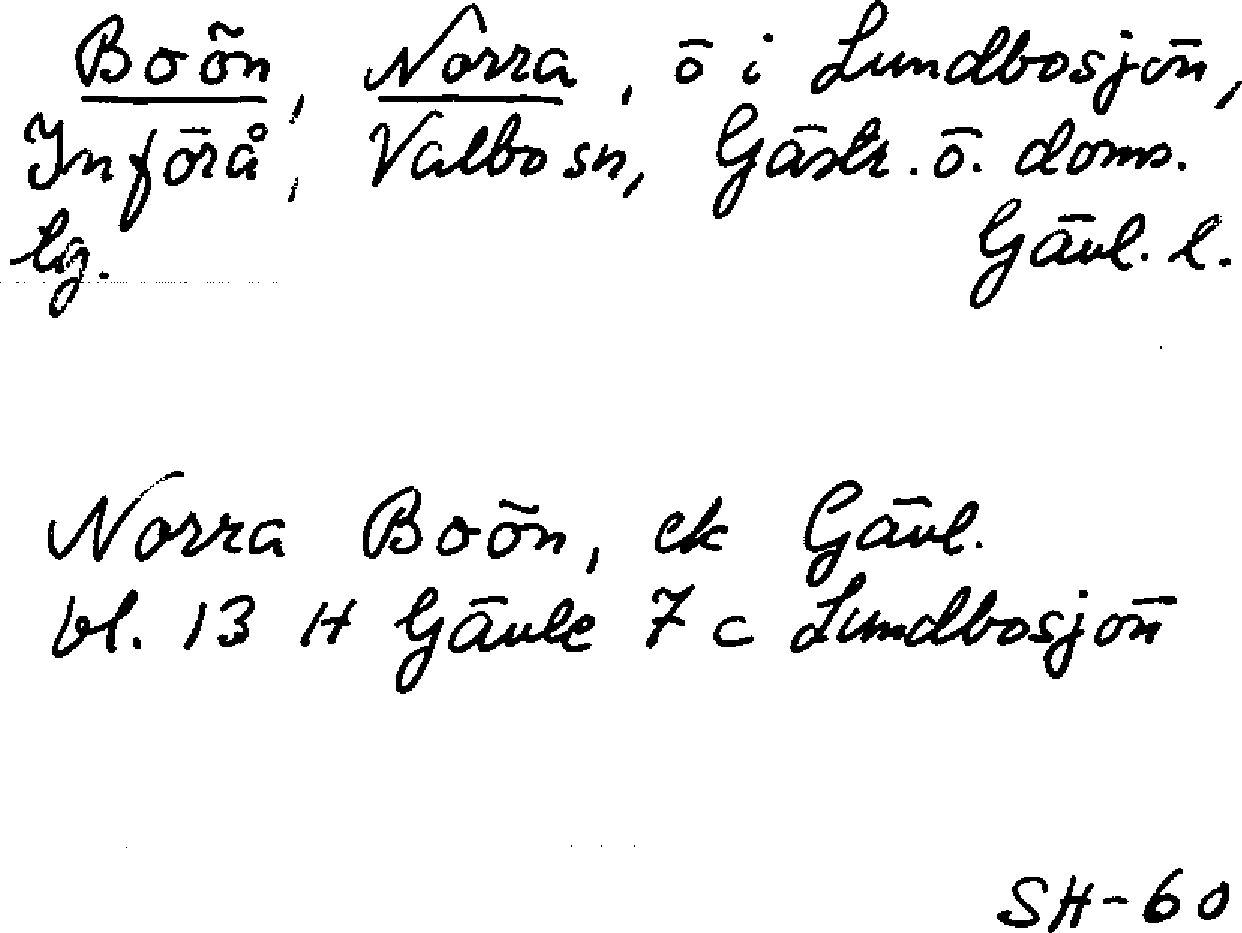 Boön, Norra, ö i Lundbosjön,
Införå, Valbo sn, Gästr. ö. doms.
lg. Gävl. l.
Norra Boön, ek Gävl.
bl. 13 H Gävle 7 c Lundbosjön
SH-60